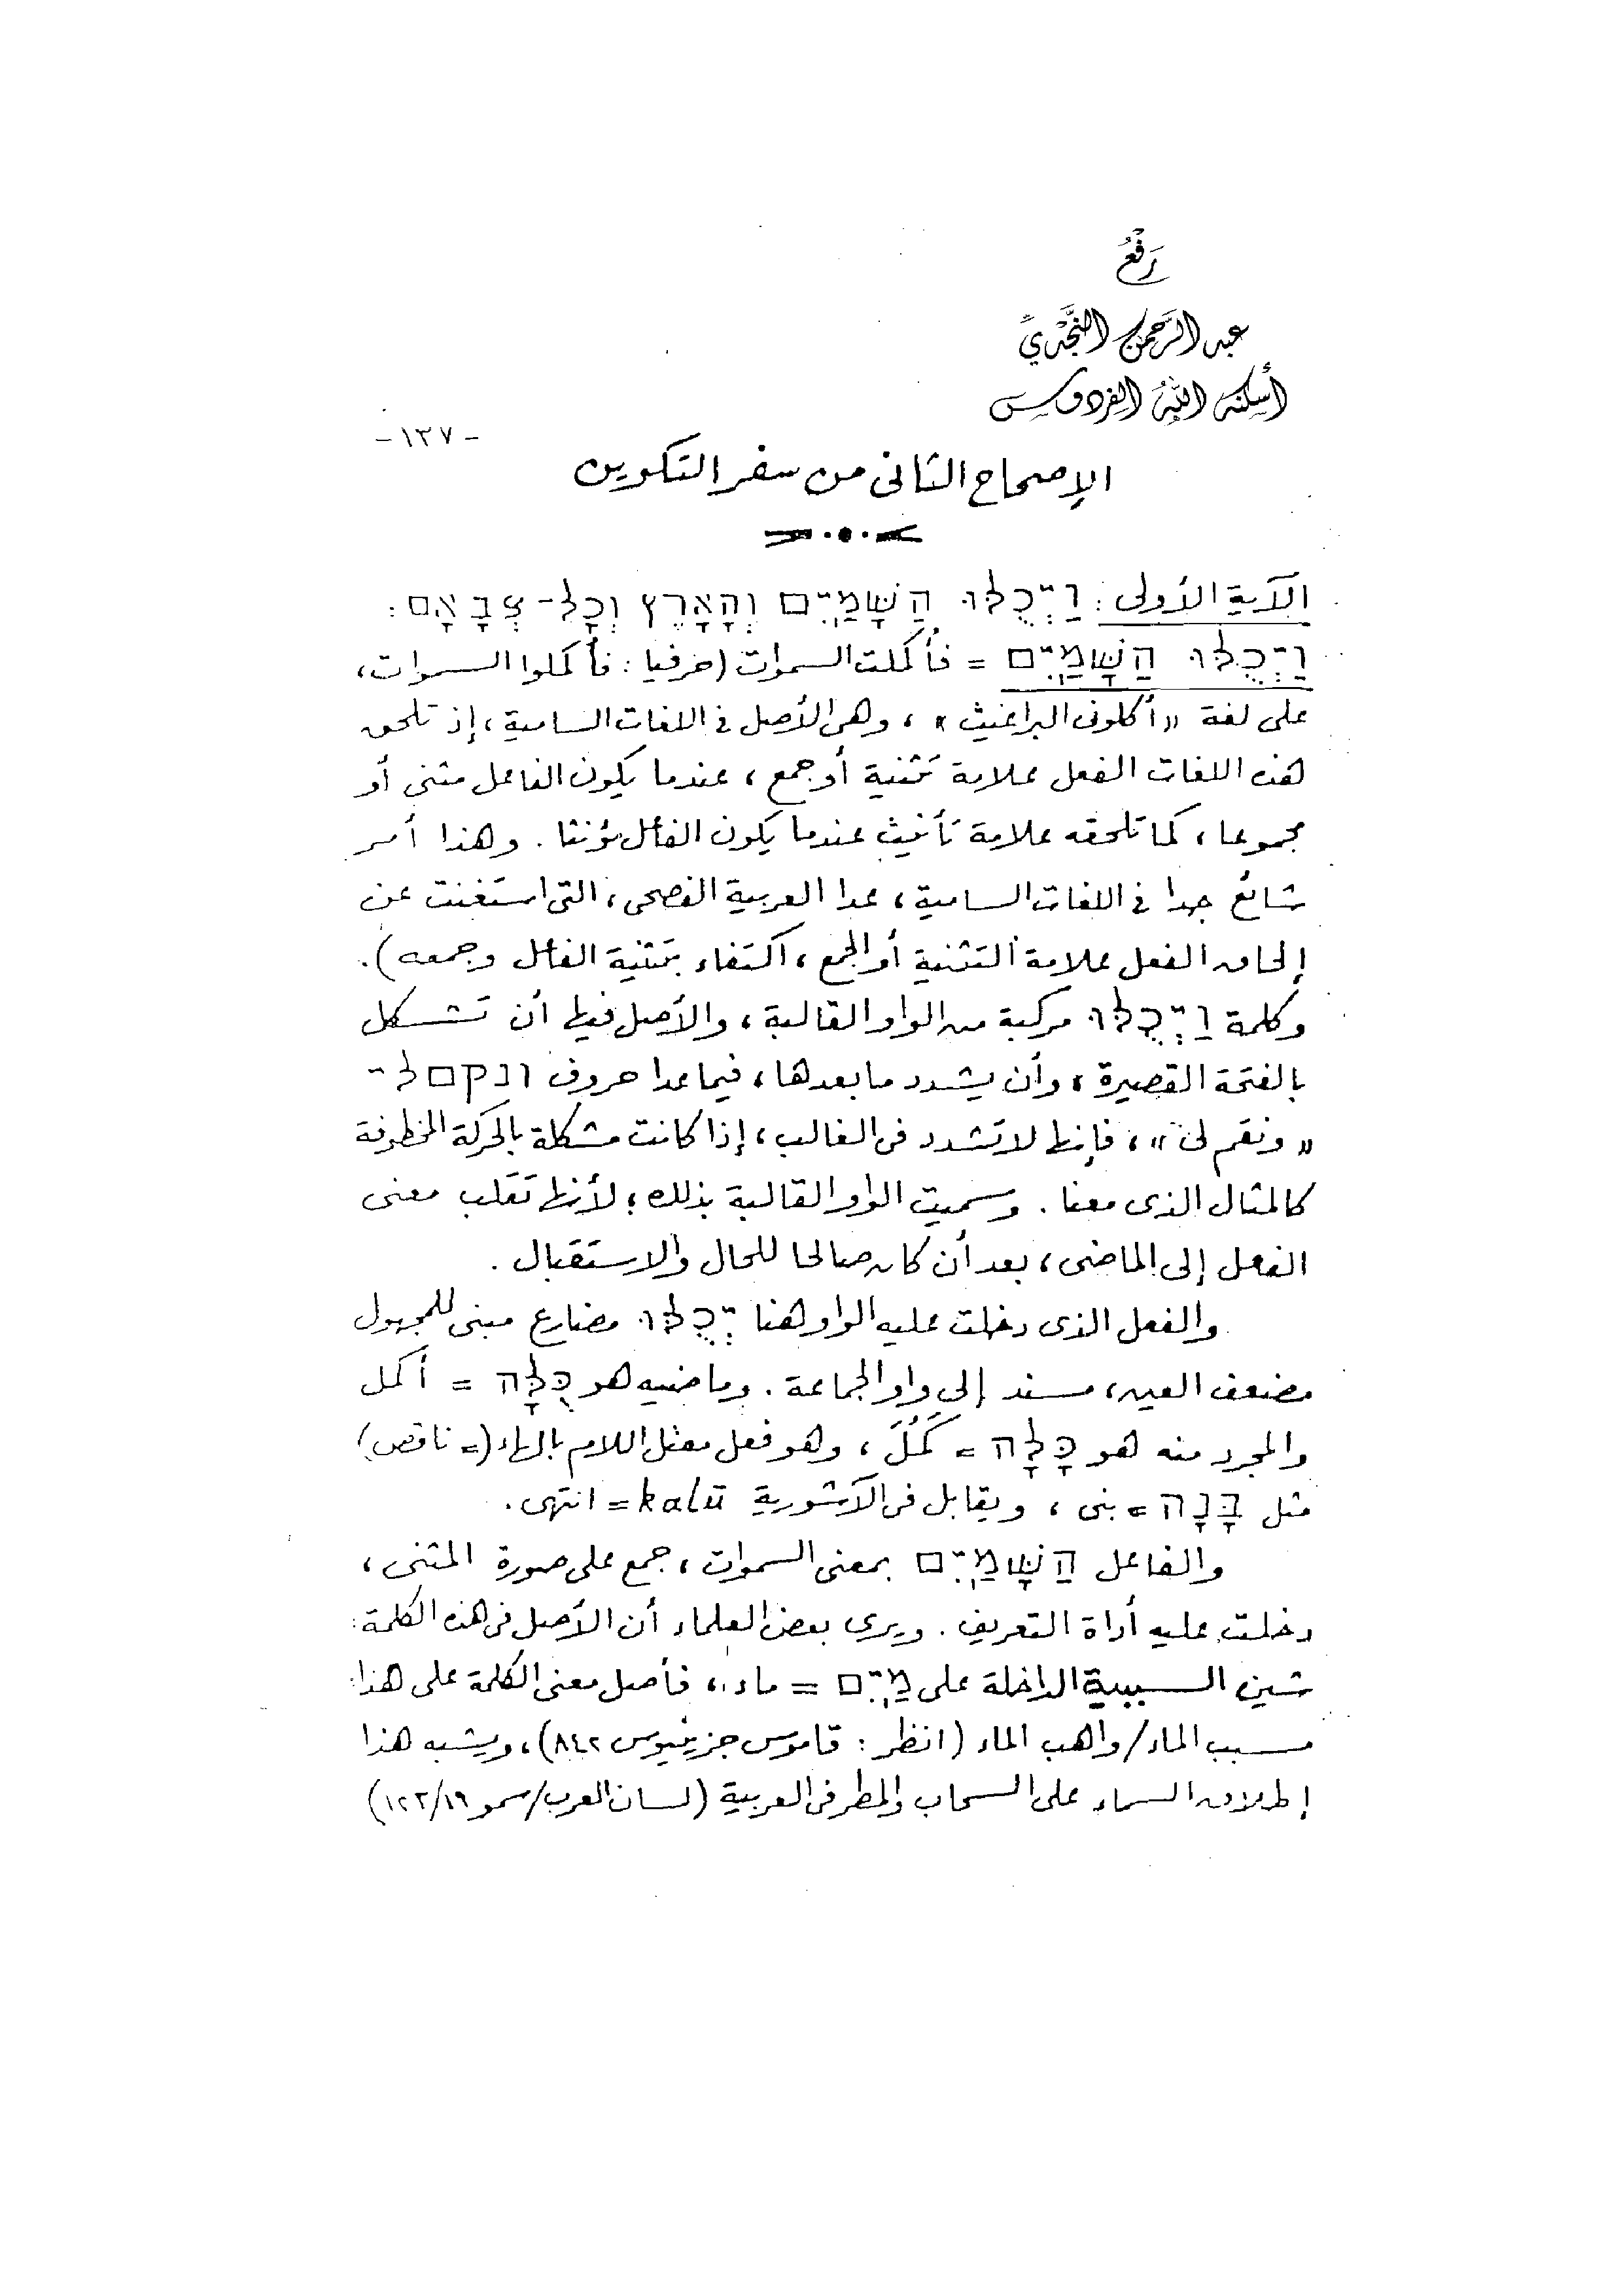 رَفْعُ
عبد الرَّحمن النَّجْدِيّ
أسكنه الله الفردوس
- ١٣٧ -
الإصحاح الثانى من سفر التكوين
الآية الأولى : וַיְכֻלּוּ הַשָּׁמַיִם וְהָאָרֶץ וְכָל-צְבָאָם :
וַיְכֻלּוּ הַשָּׁמַיִם = فأُكملت السموات (حرفيا : فأُكملوا السموات ،
على لغة « أكلونى البراغيث » ، وهى الأصل فى اللغات السامية ، إذ تلحق
هذه اللغات الفعل علامة تثنية أو جمع ، عندما يكون الفاعل مثنى أو
مجموعا ، كما تلحقه علامة تأنيث عندما يكون الفاعل مؤنثا . وهذا أمر
شائع جدا فى اللغات السامية ، عدا العربية الفصحى ، التى استغنت عن
إلحاق الفعل علامة التثنية أو الجمع ، اكتفاء بتثنية الفاعل وجمعه ) .
وكلمة וַיְכֻלּוּ مركبة من الواو القالبة ، والأصل فيها أن تشكل
بالفتحة القصيرة ، وأن يشدد ما بعدها ، فيما عدا حروف ונקמלי
« ونقم لى » ، فإنها لا تشدد فى الغالب ، إذا كانت مشكلة بالحركة المخطوفة
كالمثال الذى معنا . وسميت الواو القالبة بذلك ؛ لأنها تقلب معنى
الفعل إلى الماضى ، بعد أن كان صالحا للحال والاستقبال .
والفعل الذى دخلت عليه الواو هنا יְכֻלּוּ مضارع مبنى للمجهول
مضعف العين ، مسند إلى واو الجماعة . وماضيه هو כִּלָּה = أكمل
والمجرد منه هو כָּלָה = كَمُلَ ، وهو فعل معتل اللام بالهاء (= ناقص)
مثل בָּנָה = بنى ، ويقابل فى الآشورية kalū = انتهى .
والفاعل הַשָּׁמַיִם بمعنى السموات ، جمع على صورة المثنى ،
دخلت عليه أداة التعريف . ويرى بعض العلماء أن الأصل فى هذه الكلمة :
شين السببية الداخلة على מַיִם = ماء ، فأصل معنى الكلمة على هذا :
مسبب الماء / واهب الماء (انظر : قاموس جزينيوس ٨٤٢) ، ويشبه هذا
إطلاق السماء على السحاب والمطر فى العربية (لسان العرب / سمو ١٩/١٢٢)